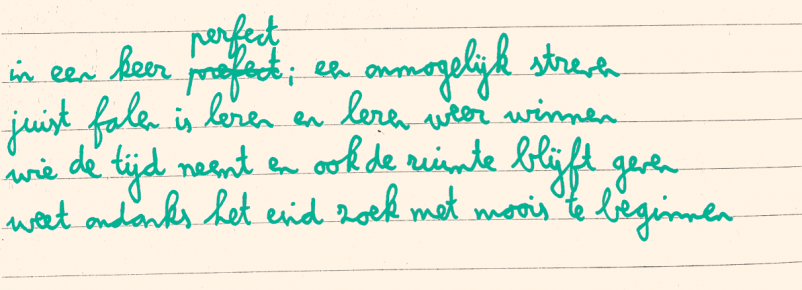 perfect
in een keer prefect; een onmogelijk streven
juist falen is leren en leren weer winnen
wie de tijd neemt en ook de ruimte blijft geven
weet ondanks het eind zoek met moois te beginnen